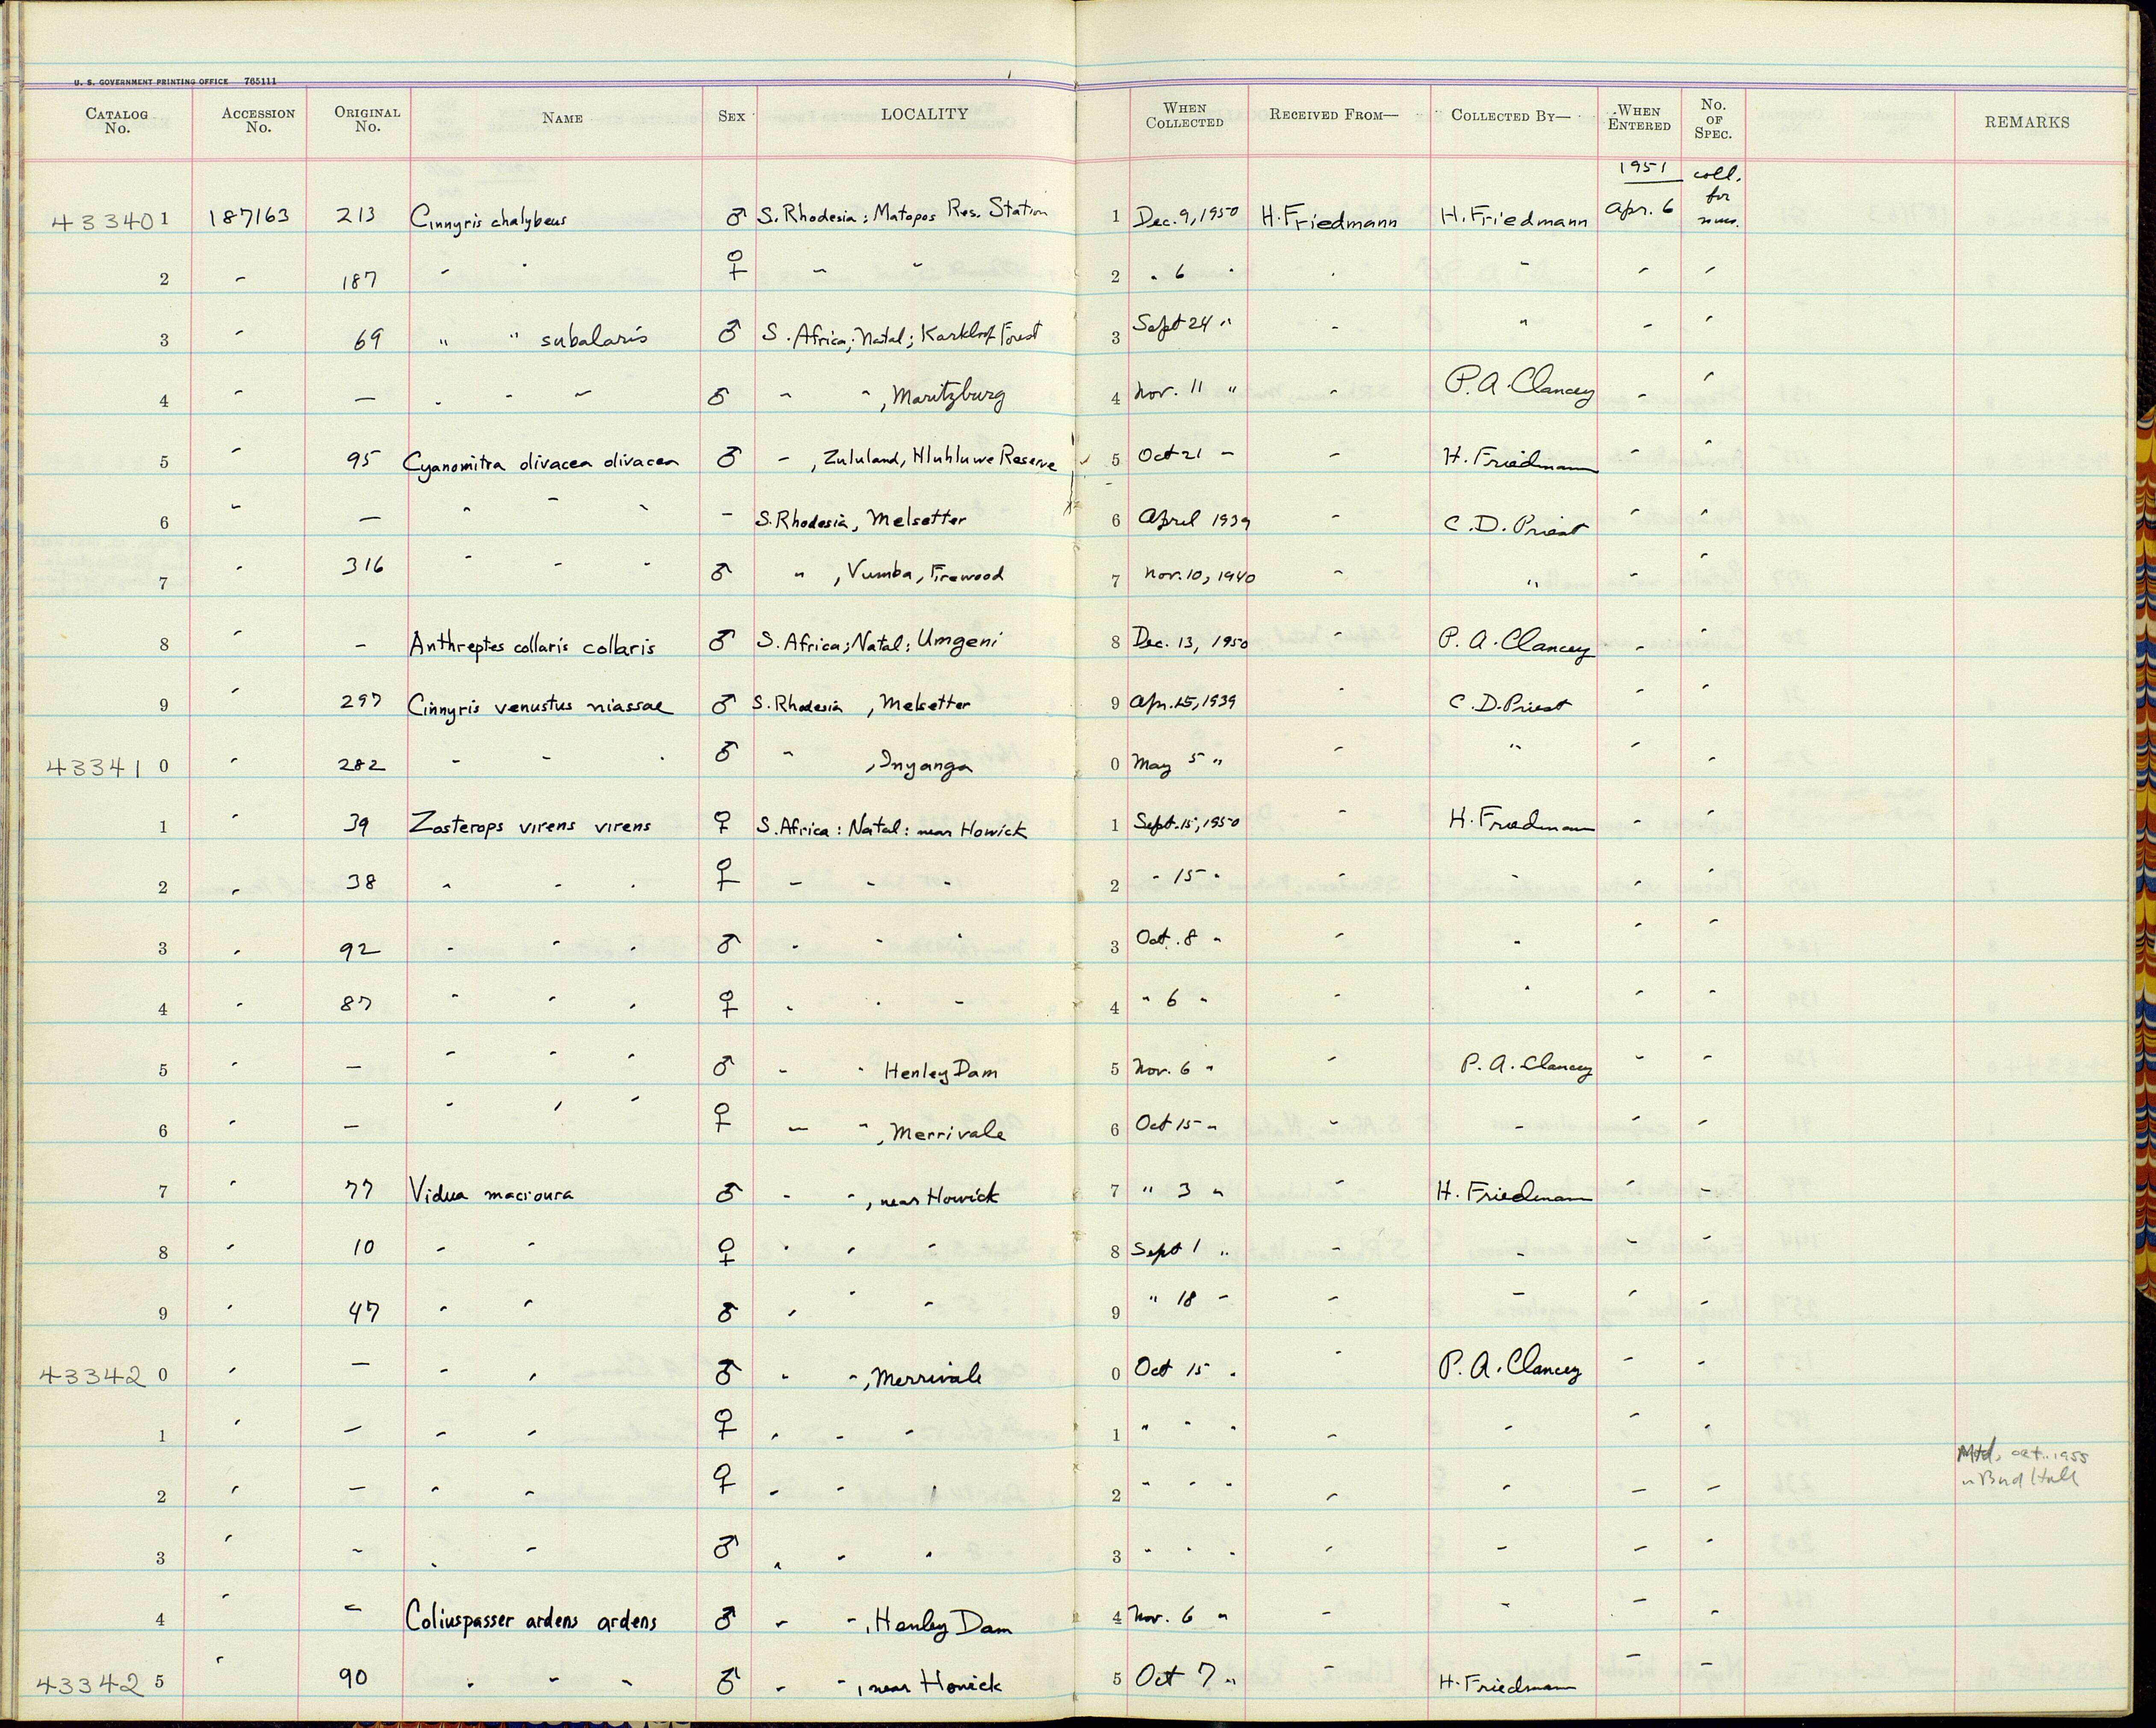 U. S. GOVERNMENT PRINTING OFFICE 765111
CATALOG No. ACCESSION No. ORIGINAL No. NAME SEX LOCALITY WHEN COLLECTED RECEIVED FROM— COLLECTED BY— WHEN ENTERED No. OF SPEC. REMARKS
1951 coll. for
433401 187163 213 Cinnyris chalybeus ♂ S. Rhodesia: Matopos Res. Station 1 Dec. 9, 1950 H. Friedmann H. Friedmann Apr. 6 mus.
2 " 187 " " ♀ " " 2 " 6 " " " " "
3 " 69 " " subalaris ♂ S. Africa; Natal; Karkloof Forest 3 Sept 24 " " " " "
4 " — " " " ♂ " ", Maritzburg 4 Nov. 11 " " P. A. Clancey " "
5 " 95 Cyanomitra olivacea olivacea ♂ ", Zululand, Hluhluwe Reserve 5 Oct 21 " " H. Friedmann " "
6 " — " " " - S. Rhodesia, Melsetter 6 April 1939 " C. D. Priest " "
7 " 316 " " " ♂ ", Vumba, Firewood 7 Nov. 10, 1940 " " " "
8 " — Anthreptes collaris collaris ♂ S. Africa; Natal: Umgeni 8 Dec. 13, 1950 " P. A. Clancey " "
9 " 297 Cinnyris venustus niassae ♂ S. Rhodesia, Melsetter 9 Apr. 15, 1939 " C. D. Priest " "
433410 " 282 " " " ♂ ", Inyanga 0 May 5 " " " " "
1 " 39 Zosterops virens virens ♀ S. Africa: Natal: near Howick 1 Sept. 15, 1950 " H. Friedmann " "
2 " 38 " " " ♀ " " " 2 " 15 " " " " "
3 " 92 " " " ♂ " " " 3 Oct. 8 " " " " "
4 " 87 " " " ♀ " " " 4 " 6 " " " " "
5 " — " " " ♂ " " Henley Dam 5 Nov. 6 " " P. A. Clancey " "
6 " — " " " ♀ " ", Merrivale 6 Oct 15 " " " " "
7 " 77 Vidua macroura ♂ " ", near Howick 7 " 3 " " H. Friedmann " "
8 " 10 " " ♀ " " " 8 Sept 1 " " " " "
9 " 47 " " ♂ " " " 9 " 18 " " " " "
433420 " — " " ♂ " ", Merrivale 0 Oct 15 " " P. A. Clancey " "
1 " — " " ♀ " " " 1 " " " " " " "
Mtd. oct. 1955
2 " — " " ♀ " " " 2 " " " " " " " Bird Hall
3 " — " " ♂ " " " 3 " " " " " " "
4 " — Coliuspasser ardens ardens ♂ " ", Henley Dam 4 Nov. 6 " " " " "
433425 " 90 " " " ♂ " ", near Howick 5 Oct 7 " " H. Friedmann " "